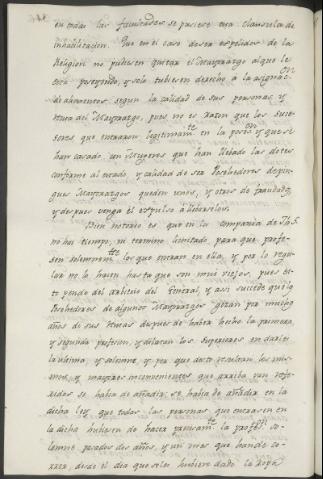 en todas las facultades se pusiese esta clausula de
inhabilitacion. Que en el caso de ser expelidos de la
Religion no pudiesen quitar el Mayorazgo al que le
esta poseyendo, y solo tubiesen derecho a la asignacⁿ
de alimentos segun la calidad de sus personas, y
renta del Mayorazgo, pues no es razon que los suce-
sores que entraron legitimamᵗᵉ en la posⁿ y que se
han casado con Mugeres que han llebado las dotes
conforme al estado, y calidad de ser Posehedores de pin-
gues Mayorazgos queden unos, y otros defraudados,
y despues venga el expulso a llebarselos.
Bien notorio es que en la Compañia de Jhs.
no hai tiempo, ni termino limitado para que profe-
sen solemnemᵗᵉ los que entran en ella, y por lo regu-
lar no lo hacen hasta que son mui viejos, pues es-
to pende del arbitrio del General, y asi sucede que los
Posehedores de algunos Mayorazgos gozan por muchos
años de sus rentas despues de haber hecho la primera,
y segunda profesion, y dilatan los Superiores en darles
la ultima, y solemne, y por que de esto resultan los mis-
mos, y mayores inconvenientes que arriba van refe-
ridos se habia de añadir en la
dicha ley que todas las personas que entrasen en
la dicha hubiesen de hacer precisamᵗᵉ la profesⁿ so-
lemne, pasados dos años, y un mes que habian de co-
rrer, desde el dia que se les hubiere dado la ropa